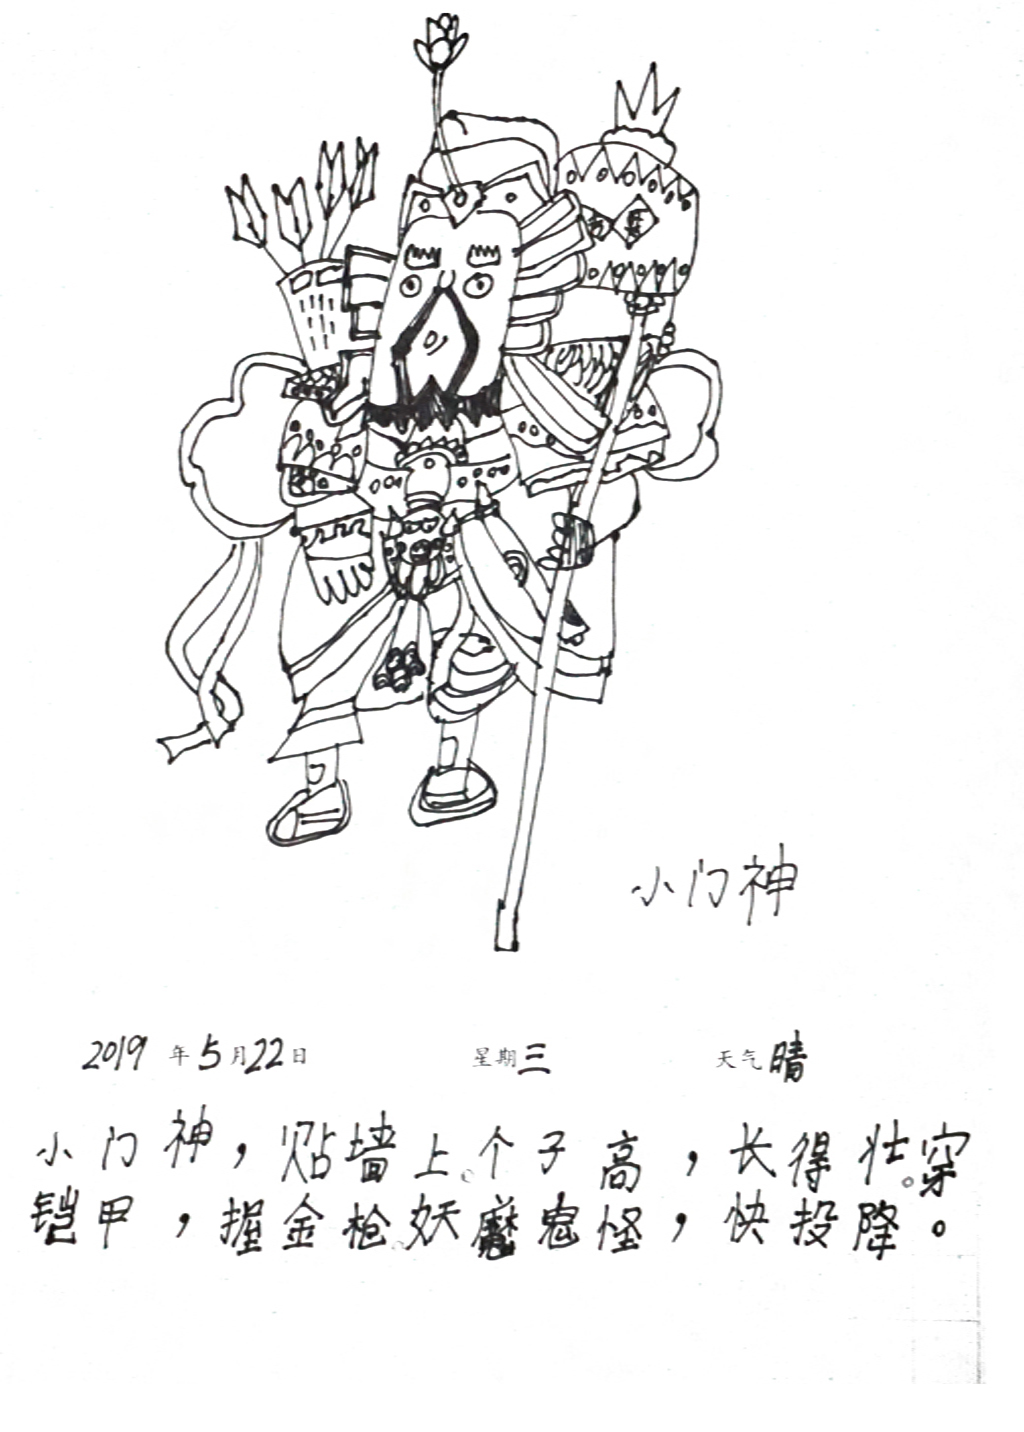 小门神
2019年5月22日 星期三 天气晴
小门神，贴墙上。个子高，长得壮。穿
铠甲，握金枪。妖魔鬼怪，快投降。